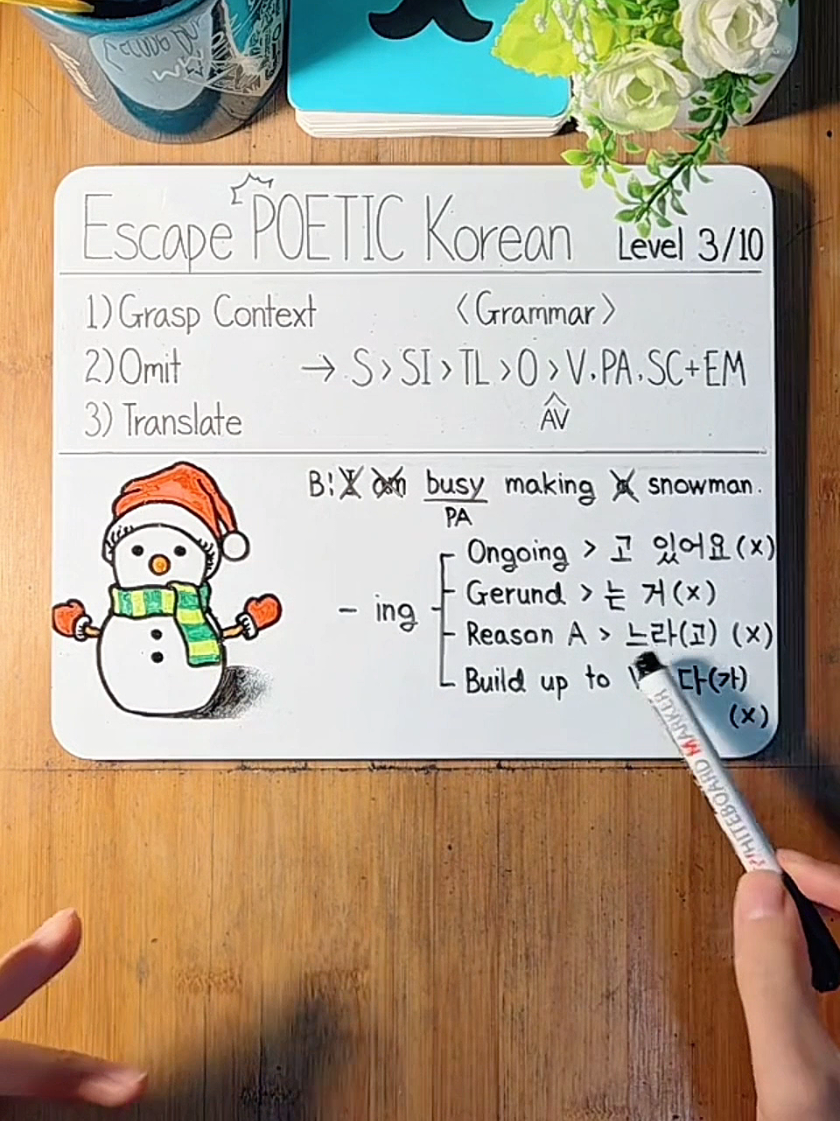 Escape POETIC Korean Level 3/10
1) Grasp Context 〈Grammar〉
2) Omit → S > SI > TL > O > V. PA. SC + EM
AV
3) Translate
B: I am busy making a snowman.
PA
- ing
Ongoing > 고 있어요 (x)
Gerund > 는 거 (x)
Reason A > 느라(고) (x)
Build up to 다(가)
(x)
WHITEBOARD MARKER